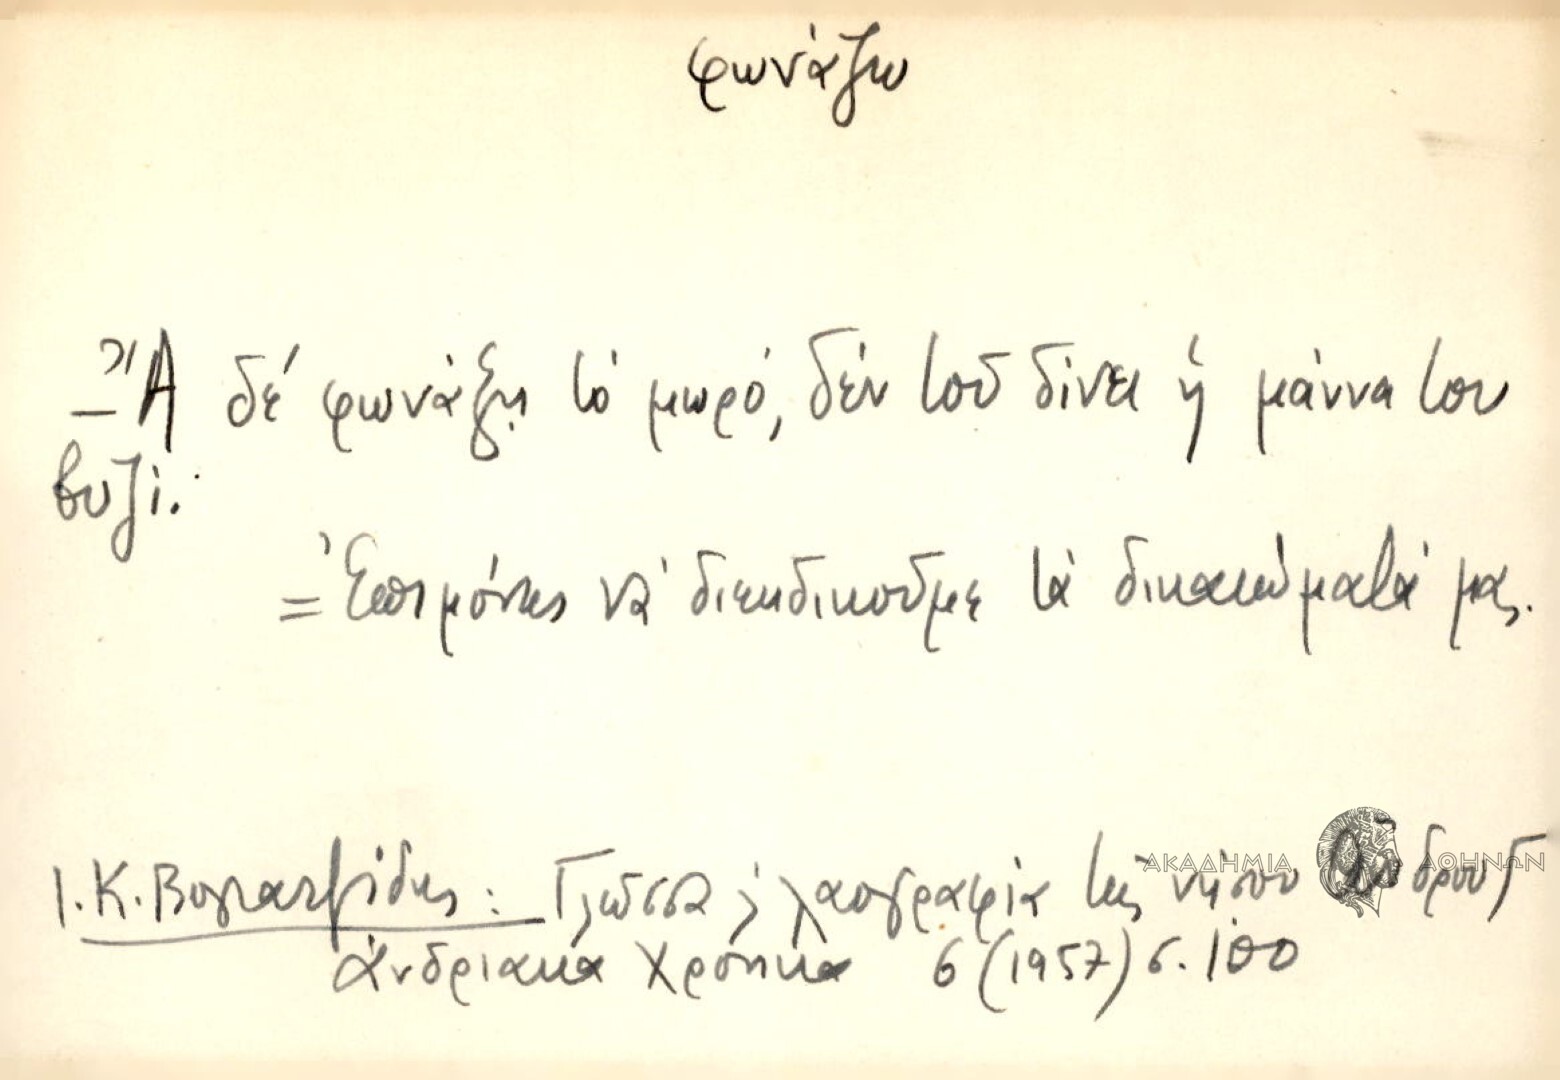 φωνάζω
– Ἄ δέ φωνάξῃ τό μωρό, δέν τοῦ δίνει ἡ μάννα του
βυζί.
= Ἐπιμόνως νά διεκδικοῦμε τά δικαιώματά μας.
Ι. Κ. Βογιατζίδης: Γλῶσσα λαογραφία τῆς νήσου Ἄνδρου
Ἀνδριακά Χρονικά 6 (1957) σ. 100
ΑΚΑΔΗΜΙΑ ΑΘΗΝΩΝ